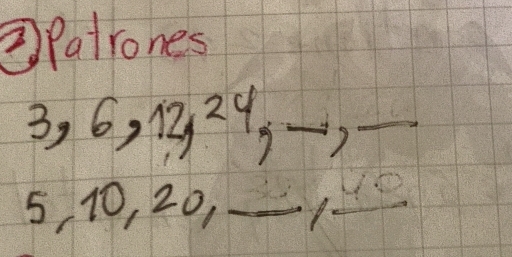 2) Patrones
3, 6, 12, 24, __, __
5, 10, 20, __, __